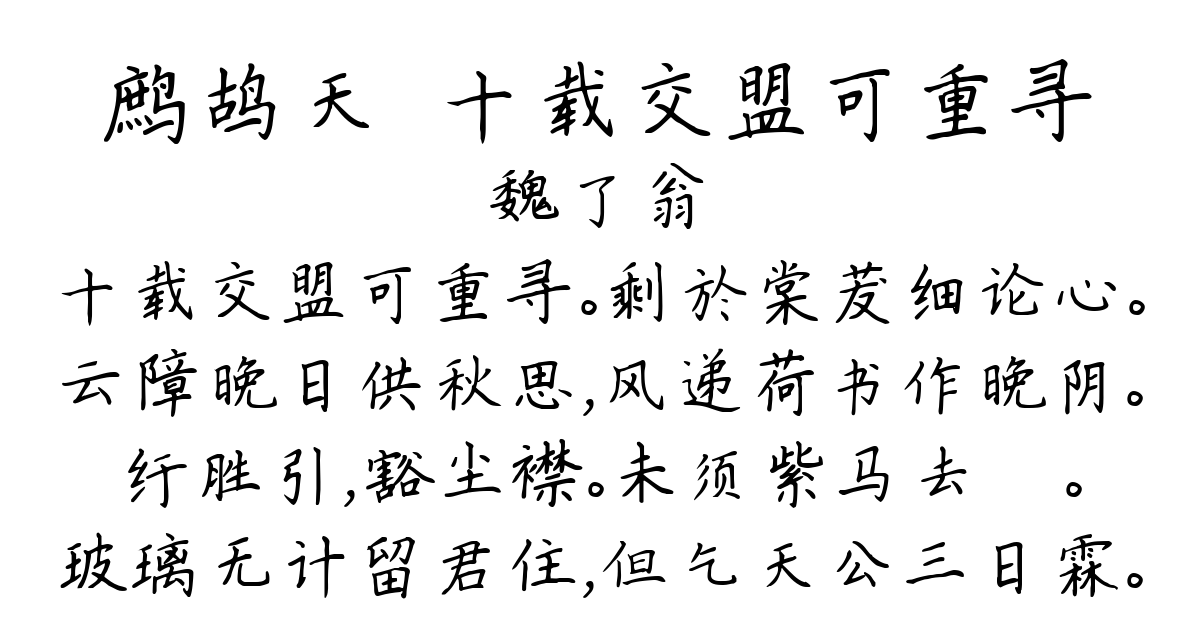 鹧鸪天 十载交盟可重寻
魏了翁
十载交盟可重寻。剩於棠茇细论心。
云障晚日供秋思,风递荷书作晚阴。
纡胜引,豁尘襟。未须紫马去 。
玻璃无计留君住,但乞天公三日霖。